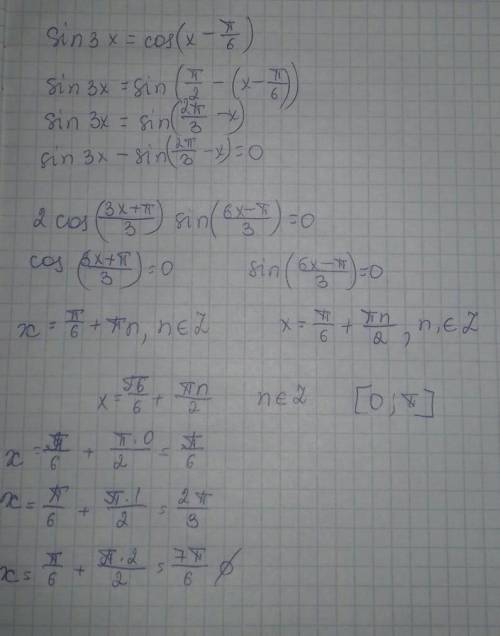 sin3x = cos(x − π/6)
sin3x = sin(π/2 − (x − π/6))
sin3x = sin(2π/3 − x)
sin3x − sin(2π/3 − x) = 0
2cos((3x+π)/3) sin((6x−π)/3) = 0
cos((3x+π)/3) = 0 sin((6x−π)/3) = 0
x = π/6 + πn, n∈Z x = π/6 + πn/2, n∈Z
x = π/6 + πn/2 n∈Z [0; π]
x = π/6 + π·0/2 = π/6
x = π/6 + π·1/2 = 2π/3
x = π/6 + π·2/2 = 7π/6 ∅